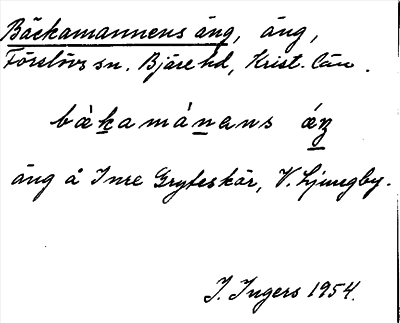 Bäckamannens äng, äng,
Förslövs sn. Bjäre hd, Krist. län.
bàkamánans áŋ
äng å Inre Gryteskär, V. Ljungby.
I. Ingers 1954.